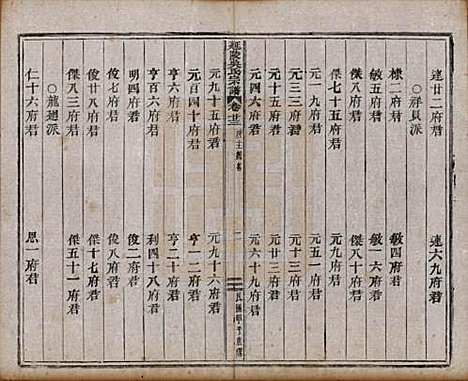 連廿二府君 連六九府君
○祥貝派
棣二府君 敏四府君
敏五府君 敏一六府君
傑八府君 傑八十府君
傑七十五府君 元九府君
元一九府君 元五一府君
元三三府君 元十三府君
元四府君 元廿二府君
元六四府君 元六十府君
吳氏宗譜 卷廿三
二
元九十五府君 元九十六府君
元百四十府君 亨一二府君
亨六府君 亨二十府君
亨百六府君 利四十八府君
明四府君 俊二府君
俊七府君 俊八府君
俊廿八府君 傑十七府君
傑八三府君 傑五十一府君
○龍迴派
仁十六府君 恩一府君